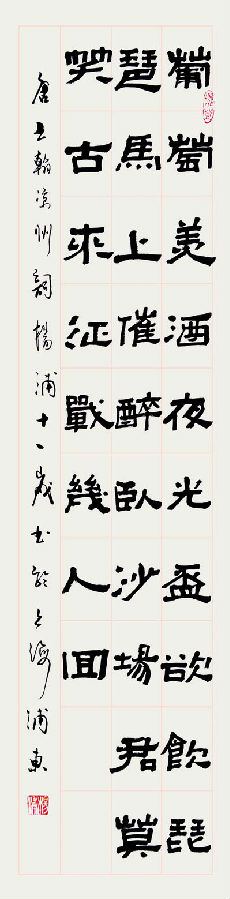 葡萄美酒夜光盃欲飲琵
琶馬上催醉臥沙場君莫
笑古來征戰幾人回
唐王翰涼州詞楊浦十一歲书於上海浦東